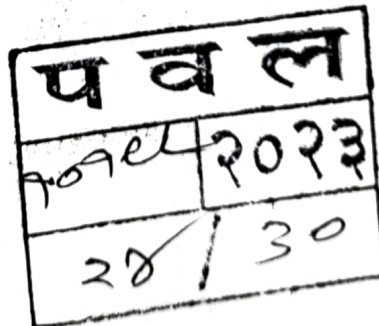 प व ल
२०२३
२४ / ३०